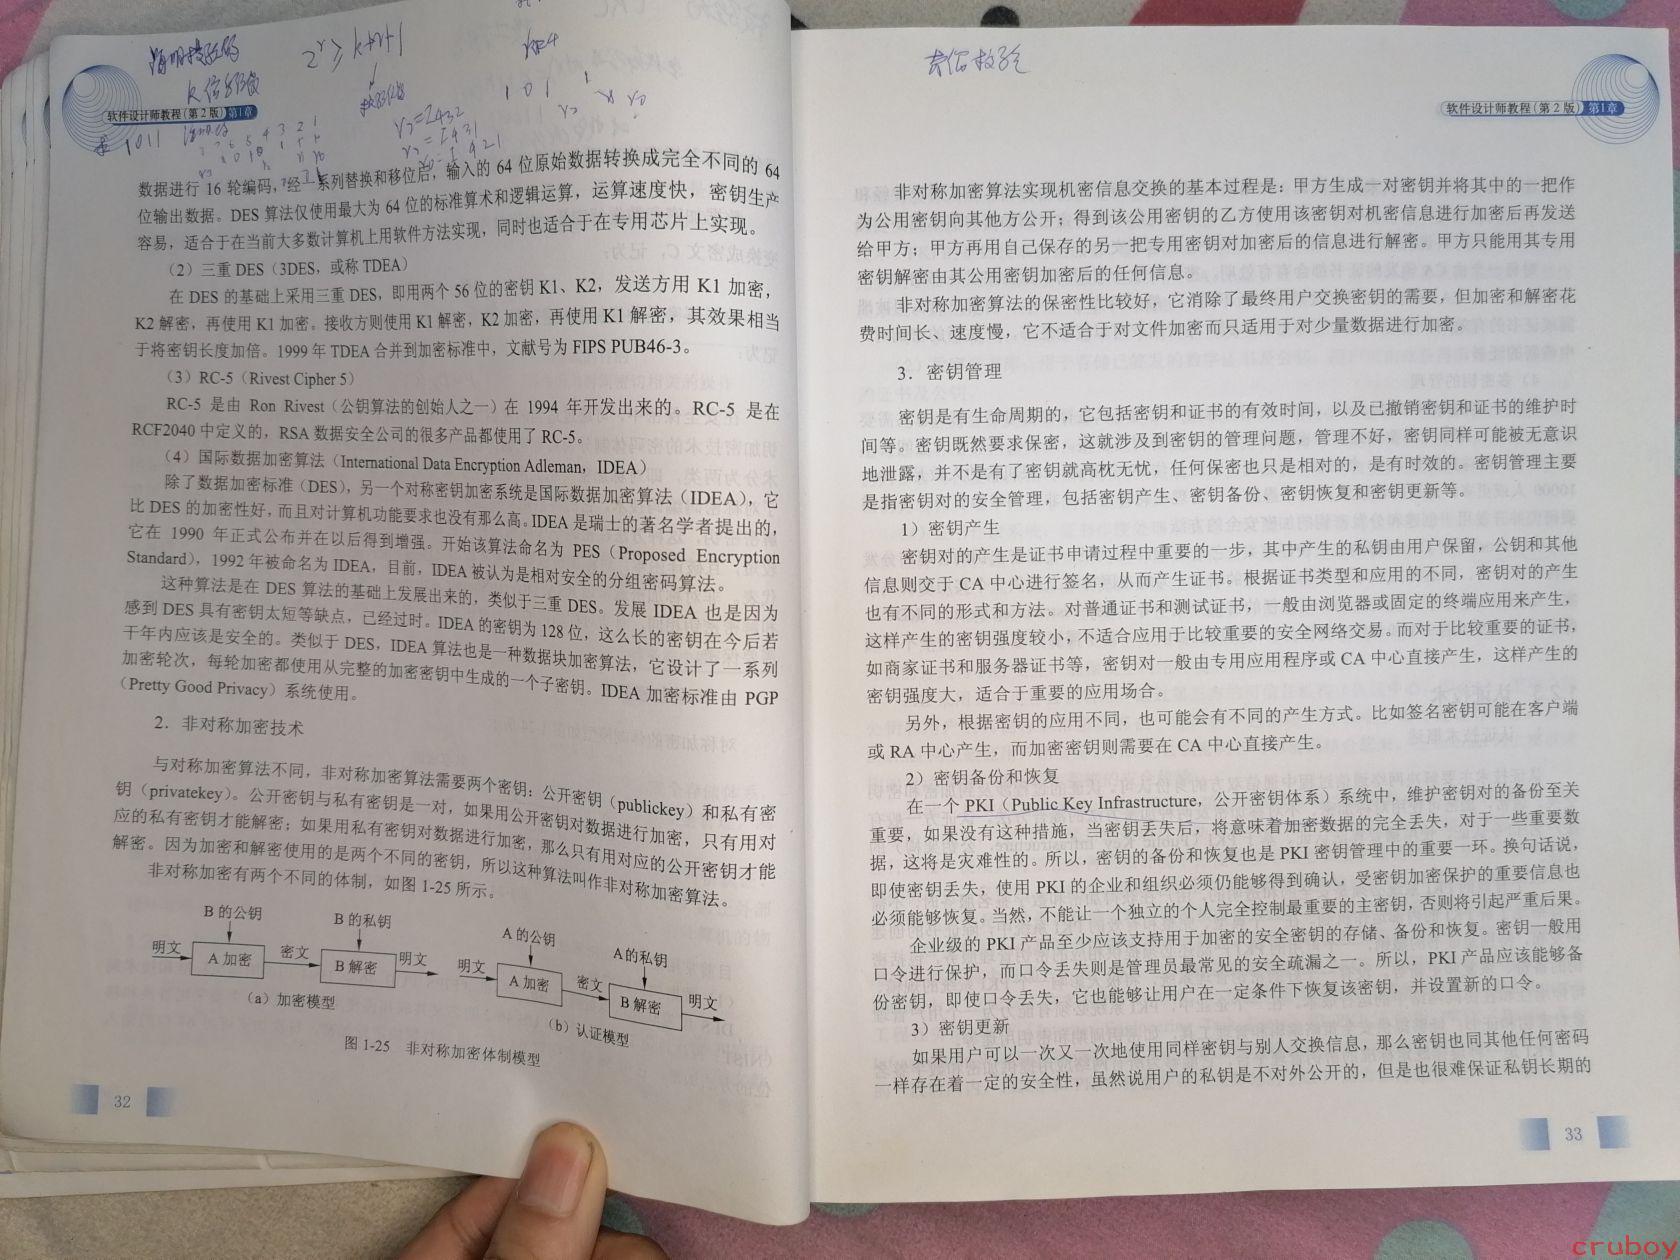 海明校验码
2^r ≥ k+r+1
K位数据
校验位
软件设计师教程(第2版) 第1章
1011
数据进行 16 轮编码，经一系列替换和移位后，输入的 64 位原始数据转换成完全不同的 64
位输出数据。DES 算法仅使用最大为 64 位的标准算术和逻辑运算，运算速度快，密钥生产
容易，适合于在当前大多数计算机上用软件方法实现，同时也适合于在专用芯片上实现。
（2）三重 DES（3DES，或称 TDEA）
在 DES 的基础上采用三重 DES，即用两个 56 位的密钥 K1、K2，发送方用 K1 加密，
K2 解密，再使用 K1 加密。接收方则使用 K1 解密，K2 加密，再使用 K1 解密，其效果相当
于将密钥长度加倍。1999 年 TDEA 合并到加密标准中，文献号为 FIPS PUB46-3。
（3）RC-5（Rivest Cipher 5）
RC-5 是由 Ron Rivest（公钥算法的创始人之一）在 1994 年开发出来的。RC-5 是在
RCF2040 中定义的，RSA 数据安全公司的很多产品都使用了 RC-5。
（4）国际数据加密算法（International Data Encryption Adleman，IDEA）
除了数据加密标准（DES），另一个对称密钥加密系统是国际数据加密算法（IDEA），它
比 DES 的加密性好，而且对计算机功能要求也没有那么高。IDEA 是瑞士的著名学者提出的，
它在 1990 年正式公布并在以后得到增强。开始该算法命名为 PES（Proposed Encryption
Standard），1992 年被命名为 IDEA，目前，IDEA 被认为是相对安全的分组密码算法。
这种算法是在 DES 算法的基础上发展出来的，类似于三重 DES。发展 IDEA 也是因为
感到 DES 具有密钥太短等缺点，已经过时。IDEA 的密钥为 128 位，这么长的密钥在今后若
干年内应该是安全的。类似于 DES，IDEA 算法也是一种数据块加密算法，它设计了一系列
加密轮次，每轮加密都使用从完整的加密密钥中生成的一个子密钥。IDEA 加密标准由 PGP
（Pretty Good Privacy）系统使用。
2．非对称加密技术
与对称加密算法不同，非对称加密算法需要两个密钥：公开密钥（publickey）和私有密
钥（privatekey）。公开密钥与私有密钥是一对，如果用公开密钥对数据进行加密，只有用对
应的私有密钥才能解密；如果用私有密钥对数据进行加密，那么只有用对应的公开密钥才能
解密。因为加密和解密使用的是两个不同的密钥，所以这种算法叫作非对称加密算法。
非对称加密有两个不同的体制，如图 1-25 所示。
B 的公钥 B 的私钥 A 的公钥 A 的私钥
明文 A 加密 密文 B 解密 明文 明文 A 加密 密文 B 解密 明文
（a）加密模型 （b）认证模型
图 1-25 非对称加密体制模型
32
奇偶校验
软件设计师教程(第2版) 第1章
非对称加密算法实现机密信息交换的基本过程是：甲方生成一对密钥并将其中的一把作
为公用密钥向其他方公开；得到该公用密钥的乙方使用该密钥对机密信息进行加密后再发送
给甲方；甲方再用自己保存的另一把专用密钥对加密后的信息进行解密。甲方只能用其专用
密钥解密由其公用密钥加密后的任何信息。
非对称加密算法的保密性比较好，它消除了最终用户交换密钥的需要，但加密和解密花
费时间长、速度慢，它不适合于对文件加密而只适用于对少量数据进行加密。
3．密钥管理
密钥是有生命周期的，它包括密钥和证书的有效时间，以及已撤销密钥和证书的维护时
间等。密钥既然要求保密，这就涉及到密钥的管理问题，管理不好，密钥同样可能被无意识
地泄露，并不是有了密钥就高枕无忧，任何保密也只是相对的，是有时效的。密钥管理主要
是指密钥对的安全管理，包括密钥产生、密钥备份、密钥恢复和密钥更新等。
1）密钥产生
密钥对的产生是证书申请过程中重要的一步，其中产生的私钥由用户保留，公钥和其他
信息则交于 CA 中心进行签名，从而产生证书。根据证书类型和应用的不同，密钥对的产生
也有不同的形式和方法。对普通证书和测试证书，一般由浏览器或固定的终端应用来产生，
这样产生的密钥强度较小，不适合应用于比较重要的安全网络交易。而对于比较重要的证书，
如商家证书和服务器证书等，密钥对一般由专用应用程序或 CA 中心直接产生，这样产生的
密钥强度大，适合于重要的应用场合。
另外，根据密钥的应用不同，也可能会有不同的产生方式。比如签名密钥可能在客户端
或 RA 中心产生，而加密密钥则需要在 CA 中心直接产生。
2）密钥备份和恢复
在一个 PKI（Public Key Infrastructure，公开密钥体系）系统中，维护密钥对的备份至关
重要，如果没有这种措施，当密钥丢失后，将意味着加密数据的完全丢失，对于一些重要数
据，这将是灾难性的。所以，密钥的备份和恢复也是 PKI 密钥管理中的重要一环。换句话说，
即使密钥丢失，使用 PKI 的企业和组织必须仍能够得到确认，受密钥加密保护的重要信息也
必须能够恢复。当然，不能让一个独立的个人完全控制最重要的主密钥，否则将引起严重后果。
企业级的 PKI 产品至少应该支持用于加密的安全密钥的存储、备份和恢复。密钥一般用
口令进行保护，而口令丢失则是管理员最常见的安全疏漏之一。所以，PKI 产品应该能够备
份密钥，即使口令丢失，它也能够让用户在一定条件下恢复该密钥，并设置新的口令。
3）密钥更新
如果用户可以一次又一次地使用同样密钥与别人交换信息，那么密钥也同其他任何密码
一样存在着一定的安全性，虽然说用户的私钥是不对外公开的，但是也很难保证私钥长期的
33
cruboy